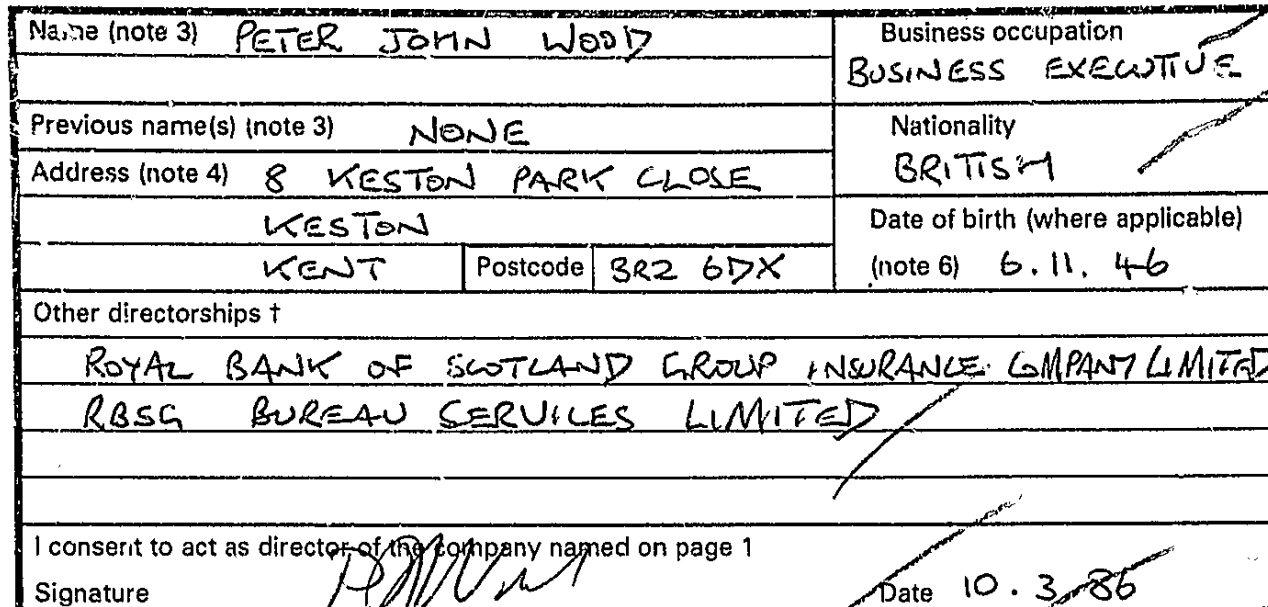 Name (note 3) PETER JOHN WOOD
Business occupation
BUSINESS EXECUTIVE
Previous name(s) (note 3) NONE
Nationality
BRITISH
Address (note 4) 8 KESTON PARK CLOSE
KESTON
KENT Postcode BR2 6DX
Date of birth (where applicable)
(note 6) 6.11.46
Other directorships †
ROYAL BANK OF SCOTLAND GROUP INSURANCE COMPANY LIMITED
RBSG BUREAU SERVICES LIMITED
I consent to act as director of the company named on page 1
Signature
Date 10.3.86